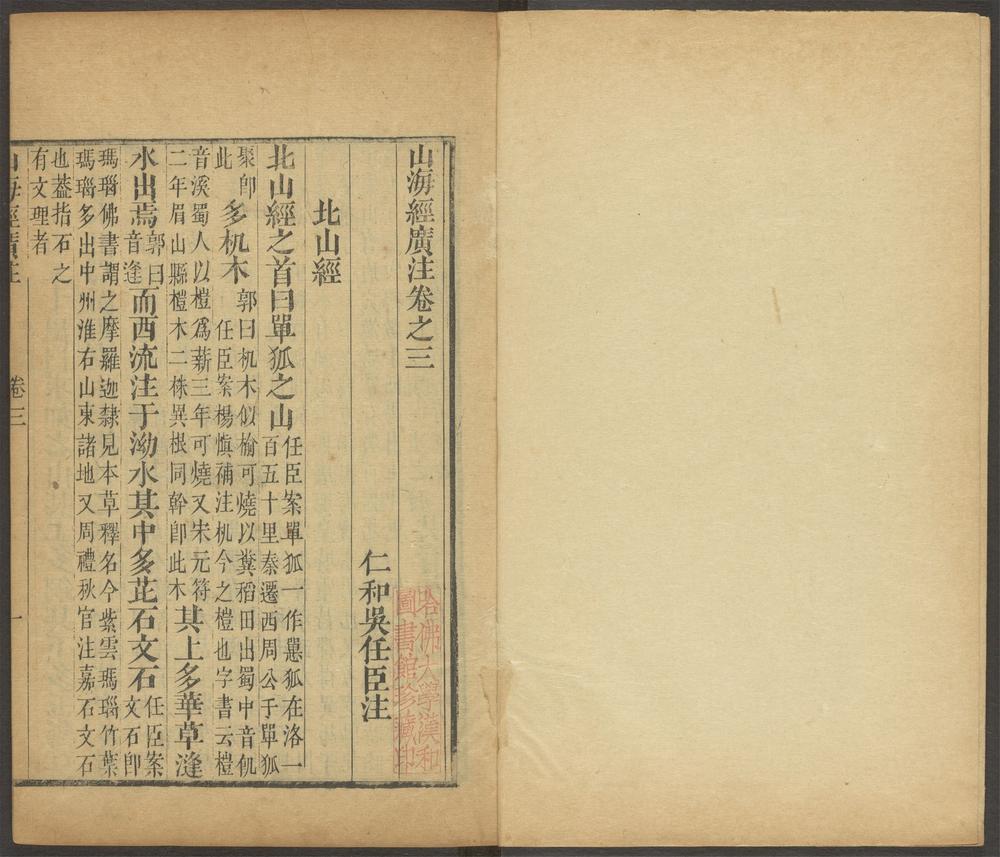 山海經廣注卷之三
仁和吳任臣注
北山經
北山經之首曰單狐之山
任臣案單狐一作𢠸狐在洛一
百五十里秦遷西周公于單狐
聚卽
此
多机木
郭曰机木似榆可燒以糞稻田出蜀中音飢
任臣案楊慎補注机今之榿也字書云榿
音溪蜀人以榿爲薪三年可燒又宋元符
二年眉山縣榿木二株異根同幹卽此木
其上多華草漨
水出焉
郭曰
音逢
而西流注于泑水其中多芘石文石
任臣案
文石卽
瑪瑙佛書謂之摩羅迦隸見本草釋名今紫雲瑪瑙竹葉
瑪瑙多出中州淮右山東諸地又周禮秋官注嘉石文石
也蓋指石之
有文理者
山海經廣注
卷三
一
哈佛大學漢和
圖書館珍藏印